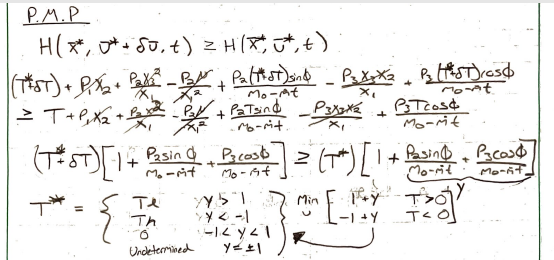 P.M.P
H(x̄*, ū* + δu, t) ≥ H(x̄*, ū*, t)
(T*+δT) + P₁X₂ + P₂X₃²/X₁ - P₂μ/X₁² + P₂(T*+δT)sinϕ/(m₀-ṁt) - P₃X₃X₂/X₁ + P₃(T*+δT)cosϕ/(m₀-ṁt)
≥ T + P₁X₂ + P₂X₃²/X₁ - P₂μ/X₁² + P₂Tsinϕ/(m₀-ṁt) - P₃X₃X₂/X₁ + P₃Tcosϕ/(m₀-ṁt)
(T*+δT)[1 + P₂sinϕ/(m₀-ṁt) + P₃cosϕ/(m₀-ṁt)] ≥ (T*)[1 + P₂sinϕ/(m₀-ṁt) + P₃cosϕ/(m₀-ṁt)]
Y
T* = { Te Y > 1 } Min [ 1+Y T>0 ]
Th Y < -1 U -1+Y T<0
0 -1<Y<1
Undetermined Y=±1